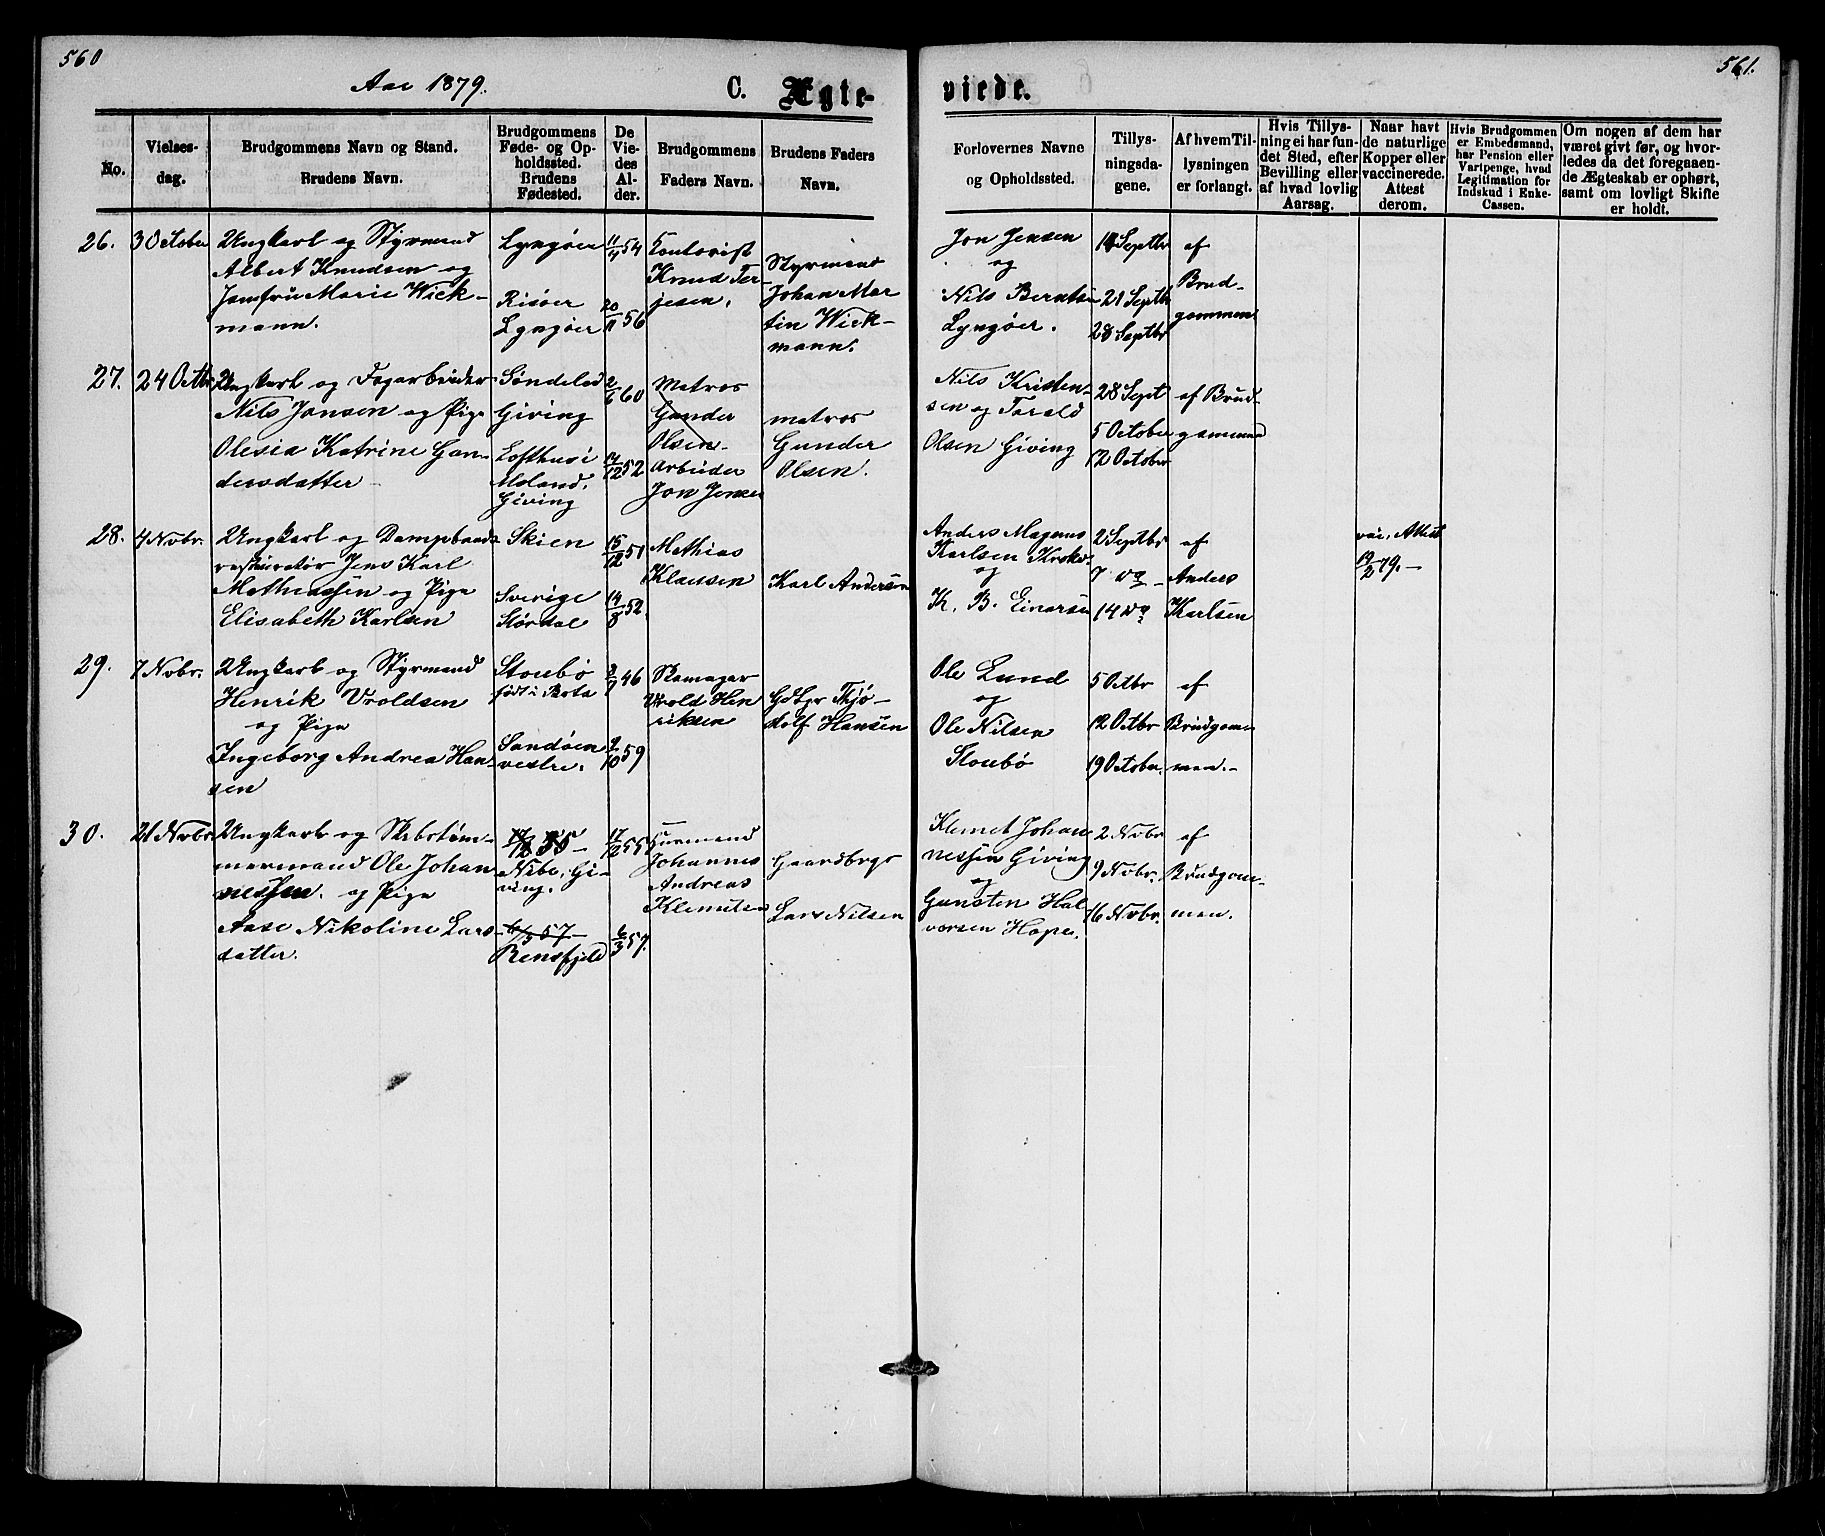 560
Aar 1879.
C. Ægte-
viede.
561.
No.
Vielses-
dag.
Brudgommens Navn og Stand.
Brudens Navn.
Brudgommens
Føde- og Op-
holdssted.
Brudens
Fødested.
De
Vie-
des
Al-
der.
Brudgommens
Faders Navn.
Brudens Faders
Navn.
Forlovernes Navne
og Opholdssted.
Tillys-
ningsda-
gene.
Af hvem Til-
lysningen
er forlangt.
Hvis Tillys-
ning ei har fun-
det Sted, efter
Bevilling eller
af hvad lovlig
Aarsag.
Naar havt
de naturlige
Kopper eller
vaccinerede.
Attest
derom.
Hvis Brudgommen
er Embedsmand,
har Pension eller
Vartpenge, hvad
Legitimation for
Indskud i Enke-
Cassen.
Om nogen af dem har
været givt før, og hvor-
ledes da det foregaaen-
de Ægteskab er ophørt,
samt om lovligt Skifte
er holdt.
26.
3 October
Ungkarl og Styrmand
Albert Knudsen og
Jomfru Marie Wick-
mann.
Lyngøer
Risøer
Lyngøer
11/4 54
20/11 56
Knud Ter-
jesen.
Styrmand
Johan Mar
tin Wick-
mann.
Jon Jensen
og
Nils Berntsen
Lyngøer.
14 Septbr
21 Septbr
28 Septbr
af
Brud-
gommen
27.
24 Octbr
Ungkarl og Fogarbeider
Nils Jonsen og Pige
Olesia Katrine Gun-
dersdatter
Søndeled
Giving
Lofthus i
Moland.
Giving
2/6 60
14/12 52
Matros
Gunder
Olsen.
Arbeider
Jon Jensen
matros
Gunder
Olsen.
Nils Kristen-
sen og Torald
Olsen Giving
28 Sept
5 October
12 October
af Brud-
gommen
28.
4 Novbr.
Ungkarl og Dampbaads
restauratør Jens Karl
Mathiassen og Pige
Elisabeth Karlsen
Skien
Sverige
Størdal
15/12 51
14/8 52.
Mathias
Klausen
Karl Andersen
Anders Magnus
Karlsen
og
K. B. Einarsen
2 Septbr
7 do
14 do
af
Anders
Karlsen
vac. Attest
19/2 79.
29.
7 Novbr.
Ungkarl og Styrmand
Henrik Vroldsen
og Pige
Ingeborg Andrea Han-
sen
Stoubø
født i Rota
Sandøen
vestre.
2/7 46
2/10 59
Skomager
Vrold Hen
riksen
Gdbgr Thjø-
dolf Hansen
Ole Lund
og
Ole Nilsen
Stoubø
5 Octbr
12 Octbr
19 October.
af
Brudgom-
men.
30.
21 Novbr.
Ungkarl og Skibstøm-
mermand Ole Johan
nessen. og Pige
Aase Nikoline Lars
datter.
17/12 55
Nibe, Gi-
ving.
6/3 57
Rensfjeld
17/12 55
6/3 57.
Huusmand
Johannes
Andreas
Klemetsen
Gaardbrgr
Lars Nilsen
Klemet Johan
nessen Giving
og
Gunsten Hal
vorsen Hope.
2 Novbr
9 Novbr.
16 Novbr.
af
Brudgom-
men.